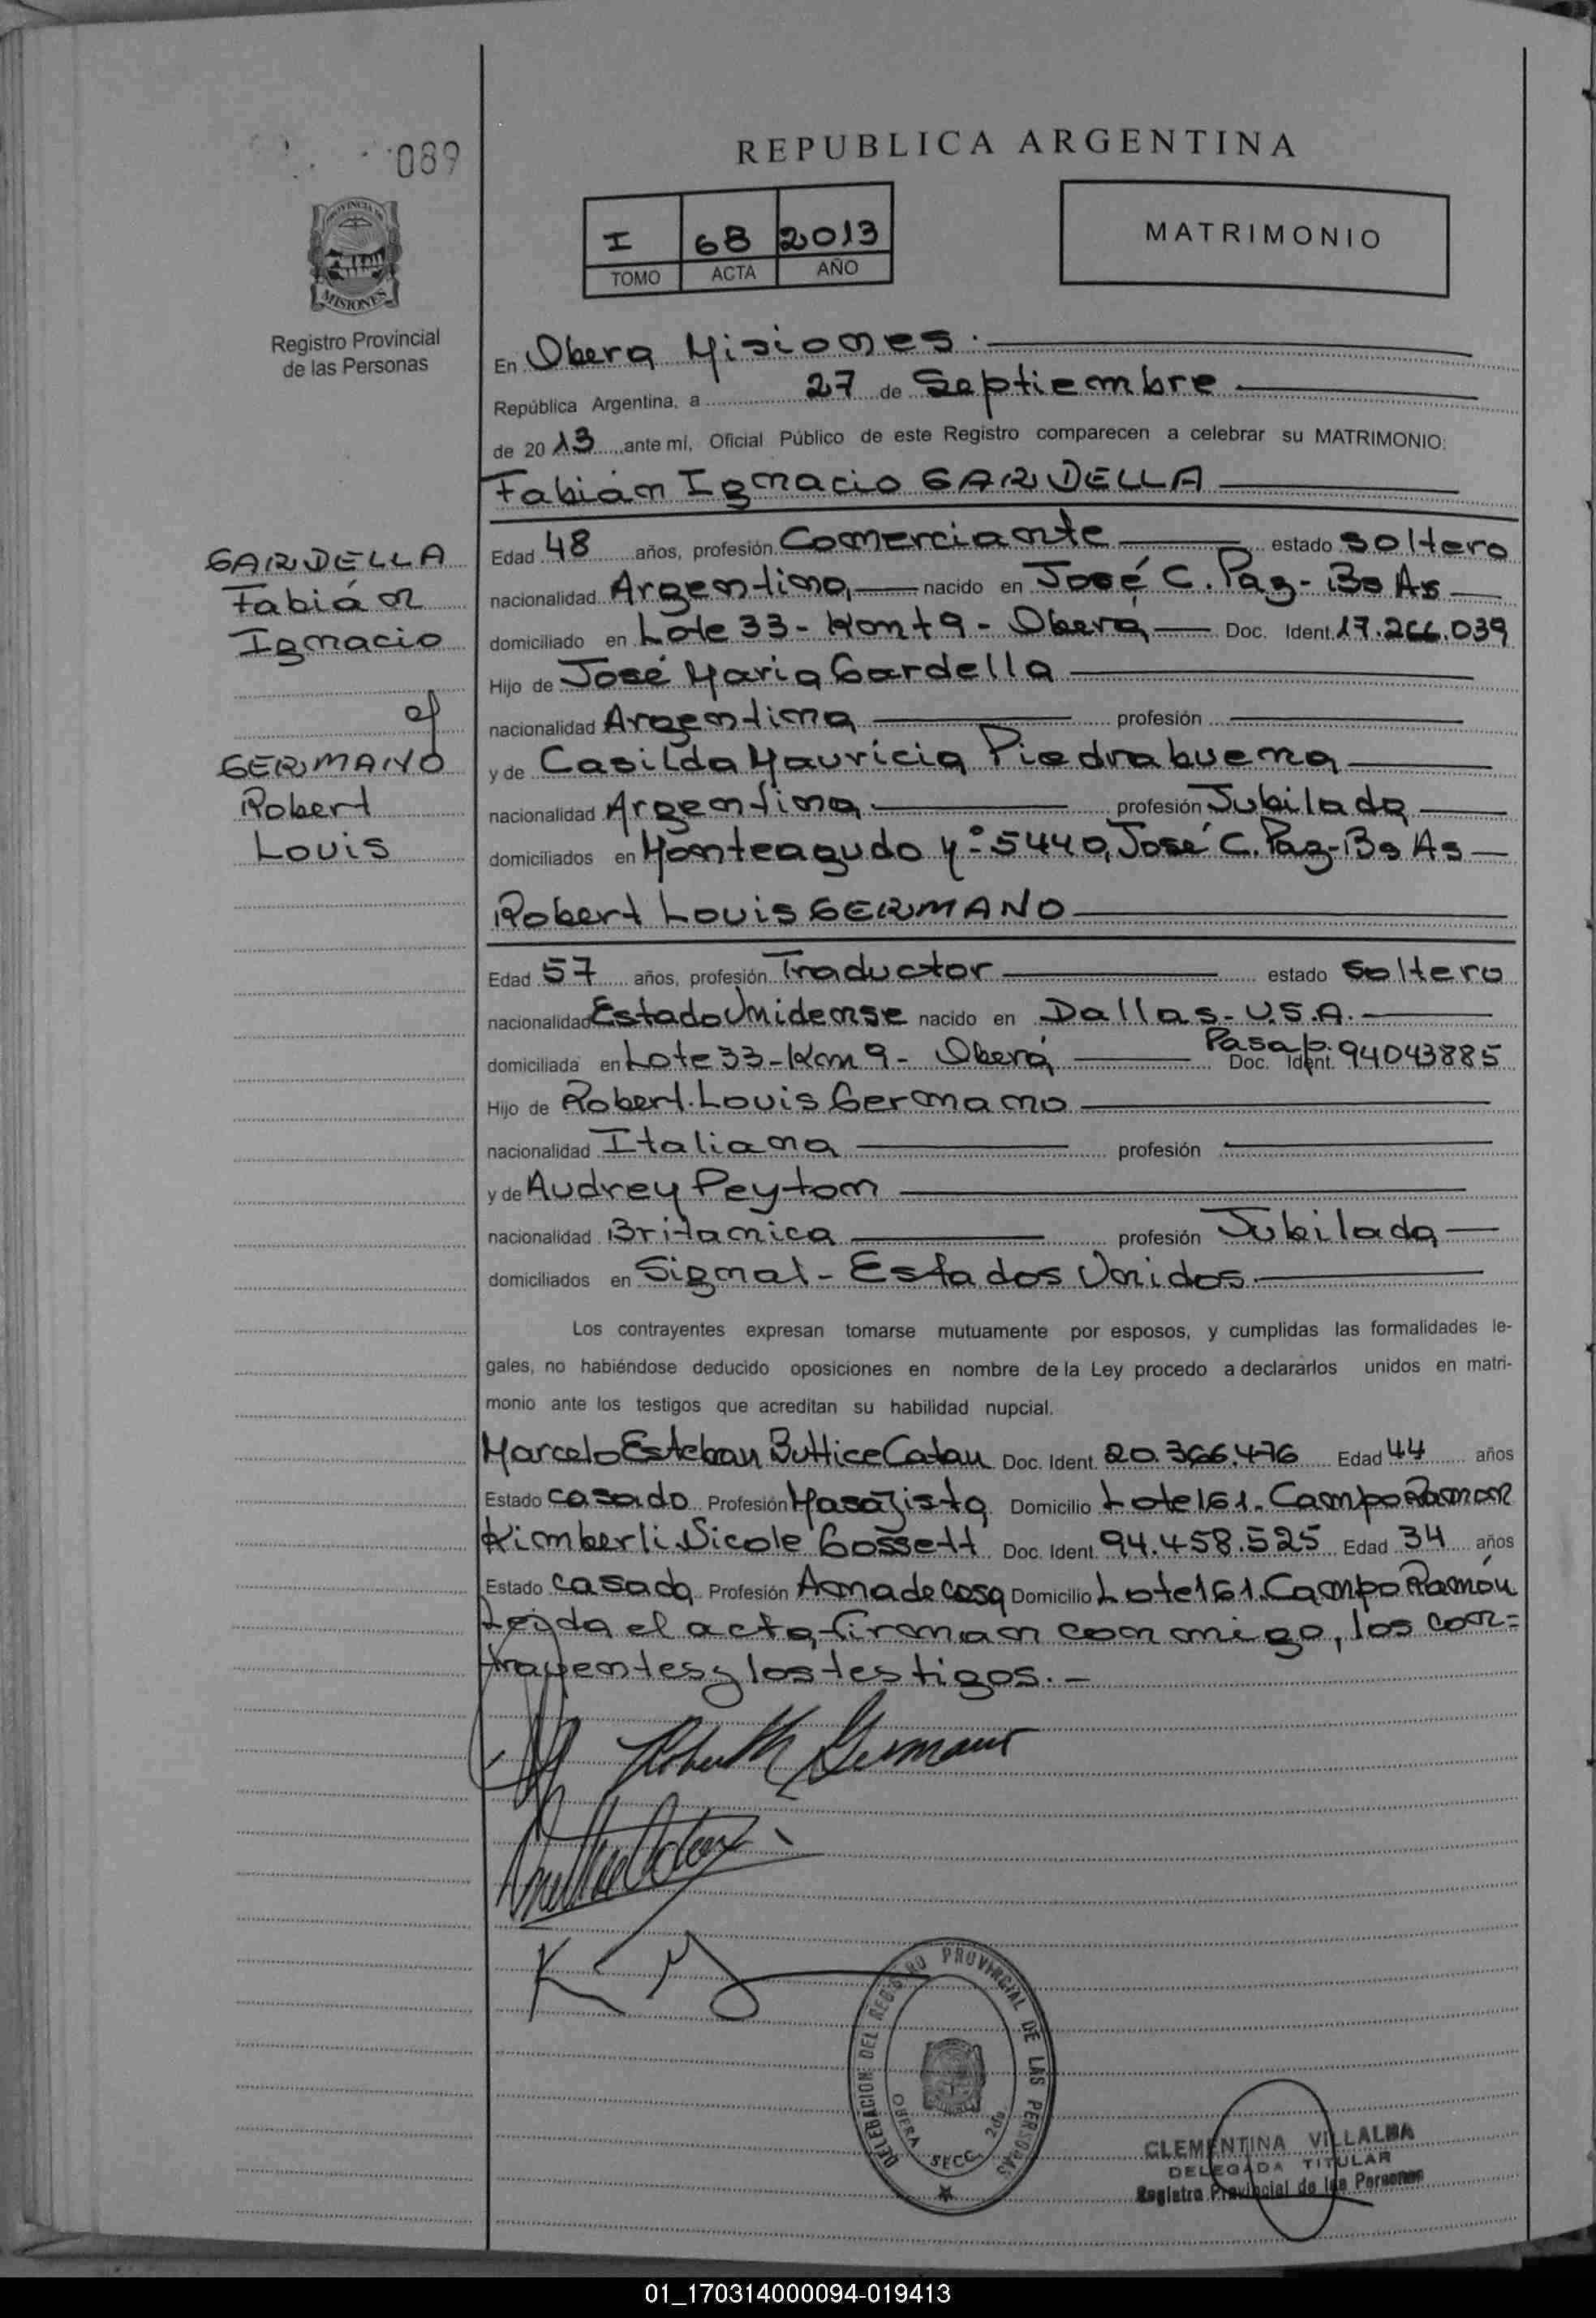 089
REPUBLICA ARGENTINA
I 68 2013
TOMO ACTA AÑO
MATRIMONIO
PROVINCIA DE
MISIONES
Registro Provincial
de las Personas
En Obera Misiones.
República Argentina, a 27 de Septiembre
de 2013 ante mí, Oficial Público de este Registro comparecen a celebrar su MATRIMONIO:
Fabián Ignacio GARDELLA
GARDELLA
Fabián
Ignacio
GERMANO
Robert
Louis
Edad 48 años, profesión Comerciante estado soltero
nacionalidad Argentina nacido en José C. Paz - Bs As
domiciliado en Lote 33 - Km 9 - Oberá Doc. Ident. 17.266.039
Hijo de José Maria Gardella
nacionalidad Argentina profesión
y de Casilda Mauricia Piedrabuena
nacionalidad Argentina profesión Jubilada
domiciliados en Monteagudo Nº 5440, José C. Paz - Bs As
Robert Louis GERMANO
Edad 57 años, profesión Traductor estado Soltero
nacionalidad EstadoUnidense nacido en Dallas - U.S.A.
domiciliada en Lote 33 - Km 9 - Oberá Pasap. Doc. Ident. 94043885
Hijo de Robert Louis Germano
nacionalidad Italiana profesión
y de Audrey Peyton
nacionalidad Britanica profesión Jubilada
domiciliados en Signal - Estados Unidos
Los contrayentes expresan tomarse mutuamente por esposos, y cumplidas las formalidades le-
gales, no habiéndose deducido oposiciones en nombre de la Ley procedo a declararlos unidos en matri-
monio ante los testigos que acreditan su habilidad nupcial.
Marcelo Esteban Buttice Catan Doc. Ident. 20.366.476 Edad 44 años
Estado casado Profesión Masajista Domicilio Lote 161. Campo Ramon
Kimberli Nicole Gossett Doc. Ident. 94.458.525 Edad 34 años
Estado casada Profesión Ama de casa Domicilio Lote 161. Campo Ramón
Leida el acta, firman conmigo, los con=
trayentes y los testigos.-
Robert Germano
DELEGACION DEL REGISTRO PROVINCIAL DE LAS PERSONAS
OBERA SECC. 2da.
CLEMENTINA VILLALBA
DELEGADA TITULAR
Registro Provincial de las Personas
01_170314000094-019413